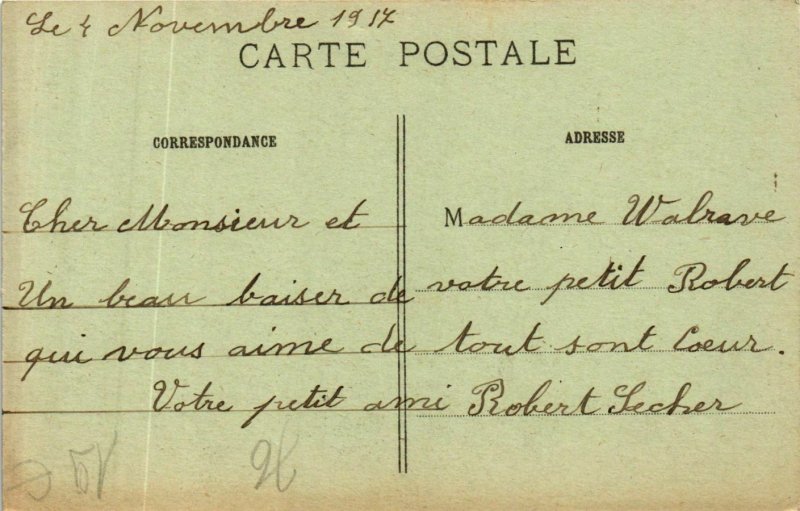 Le 4 Novembre 1917
CARTE POSTALE
CORRESPONDANCE
ADRESSE
Cher Monsieur et Madame Walrave
Un beau baiser de votre petit Robert
qui vous aime de tout sont Coeur.
Votre petit ami Robert Secher